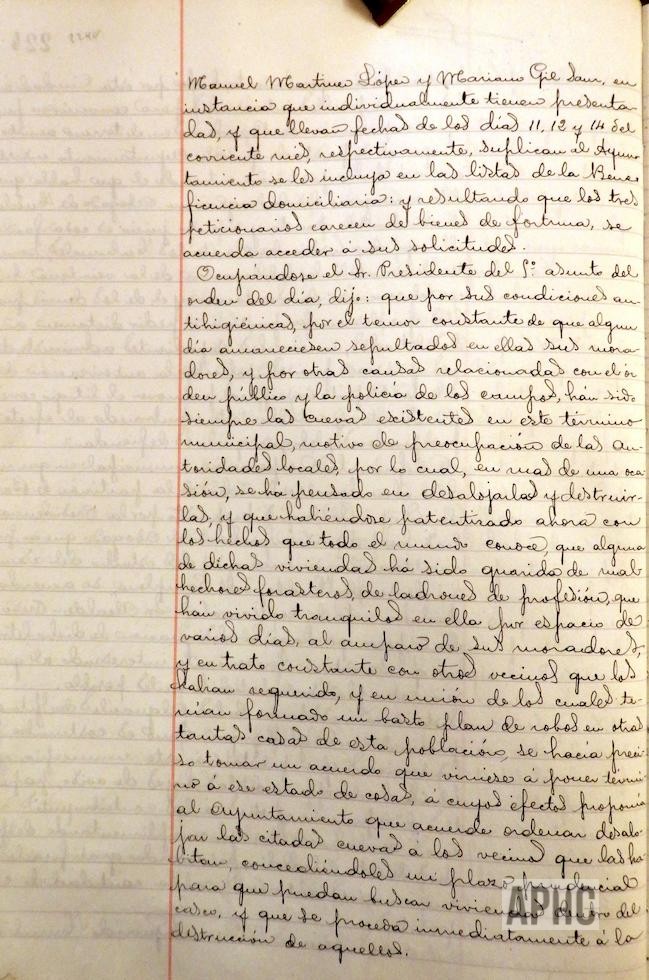 Manuel Martinez López y Mariano Gil Sanz, en
instancia que individualmente tienen presenta-
das, y que llevan fechas de los días 11, 12 y 14 del
corriente més, respectivamente, suplican al Ayun-
tamiento se les incluya en las listas de la Bene-
ficencia domiciliaria: y resultando que los tres
peticionarios carecen de bienes de fortuna, se
acuerda acceder á sus solicitudes.
Ocupándose el Sr. Presidente del 5º asunto del
orden del día, dijo: que por sus condiciones an-
tihigiénicas, por el temor constante de que algun
día amaneciesen sepultados en ellas sus mora-
dores, y por otras causas relacionadas con el ór
den público y la policía de los campos, hán sido
siempre las cuevas existentes en este término
municipal, motivo de preocupación de las au-
toridades locales, por lo cual, en mas de una oca
sión, se há pensado en desalojarlas y destruir-
las, y que habiéndose patentizado ahora con
los hechos que todo el mundo conoce, que alguna
de dichas viviendas há sido guarida de mal-
hechores forasteros, de ladrones de profesión, que
hán vivido tranquilos en ella por espacio de
varios días, al amparo de sus moradores,
y en trato constante con otros vecinos que los
habian requerido, y en unión de los cuales te-
nían formado un basto plan de robos en otras
tantas casas de esta población, se hacía preci-
so tomar un acuerdo que viniese á poner térmi-
no á ese estado de cosas, á cuyos efectos proponía
al Ayuntamiento que acuerde ordenar desalo-
jar las citadas cuevas á los vecinos que las ha-
bitan, concediéndoles un plazo prudencial
para que puedan buscar viviendas dentro del
casco, y que se proceda inmediatamente á la
destrucción de aquellas.
APHC